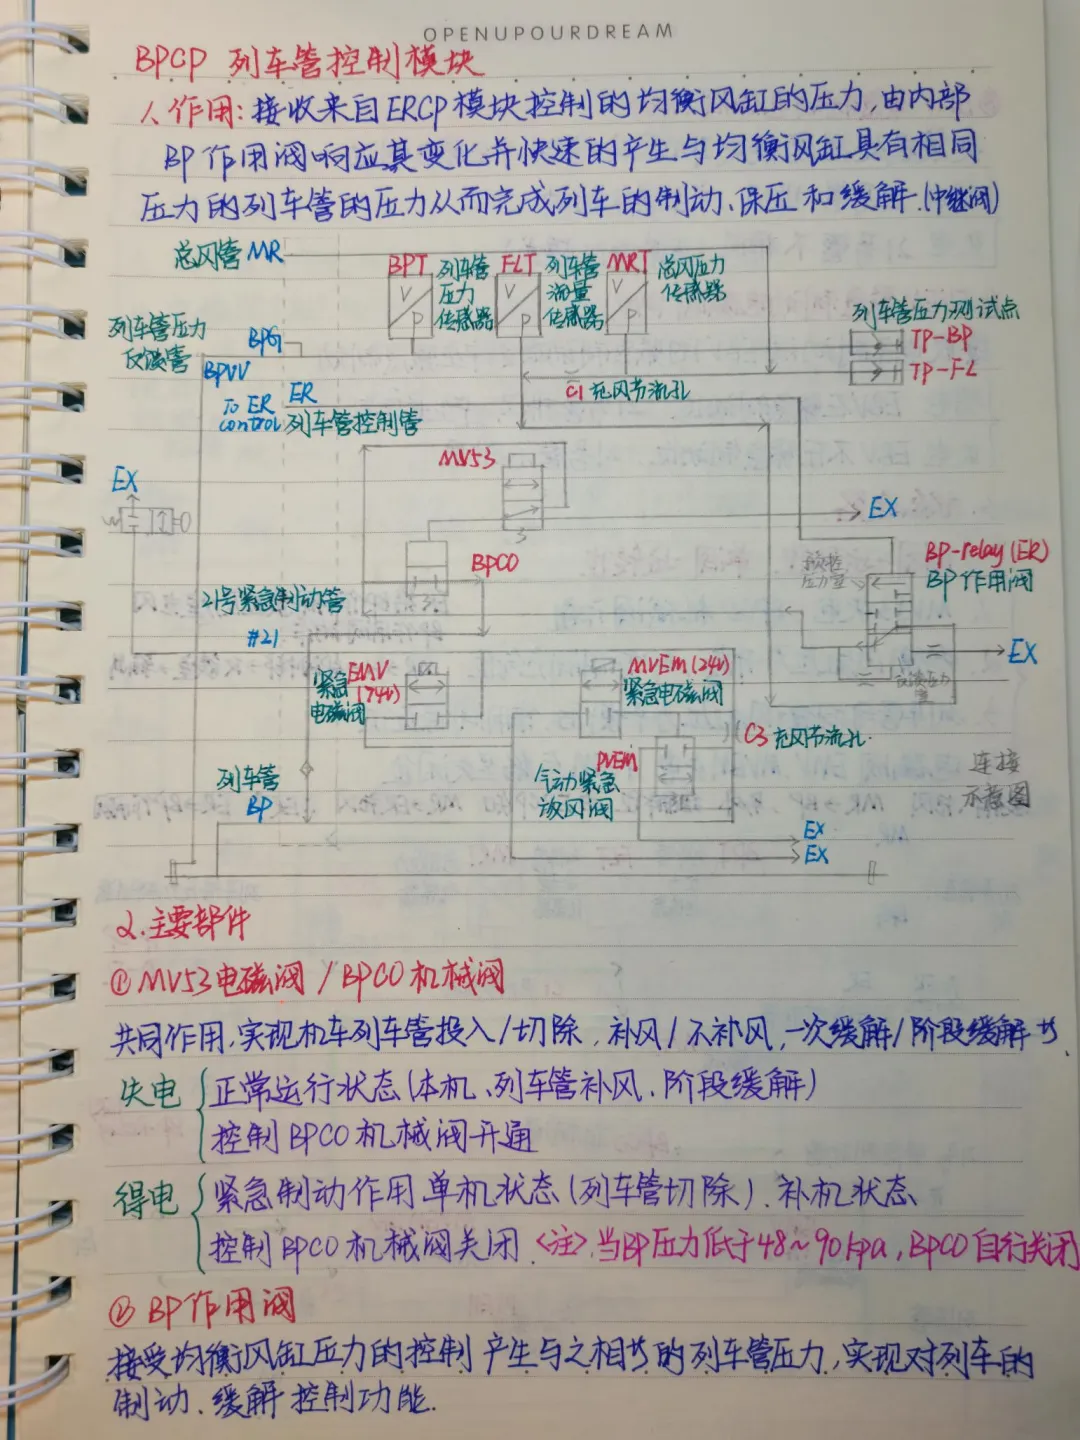 OPENUPOURDREAM
BPCP 列车管控制模块
1、作用:接收来自ERCP模块控制的均衡风缸的压力,由内部
BP作用阀响应其变化并快速的产生与均衡风缸具有相同
压力的列车管的压力从而完成列车的制动、保压和缓解.(中继阀)
总风管 MR
BPT 列车管压力传感器
FLT 列车管流量传感器
MRT 总风压力传感器
列车管压力测试点
TP-BP
TP-FL
列车管压力反馈管
BPG
BPVV
To ER control
ER
列车管控制管
C1充风节流孔
MV53
EX
EX
BPCO
BP-relay(ER)
BP作用阀
预控压力室
21号紧急制动管
#21
EX
EMV (74V)
紧急电磁阀
MVEM(24V)
紧急电磁阀
反馈压力室
C3充风节流孔.
PVEM
气动紧急放风阀
列车管
BP
连接示意图
EX
EX
2.主要部件
①MV53电磁阀/BPCO机械阀
共同作用,实现机车列车管投入/切除、补风/不补风、一次缓解/阶段缓解等.
失电 { 正常运行状态(本机、列车管补风、阶段缓解)
控制BPCO机械阀开通
得电 { 紧急制动作用 单机状态(列车管切除)、补机状态
控制BPCO机械阀关闭 <注>.当BP压力低于48~90kpa,BPCO自行关闭
②BP作用阀
接受均衡风缸压力的控制 产生与之相等的列车管压力,实现对列车的
制动、缓解控制功能.